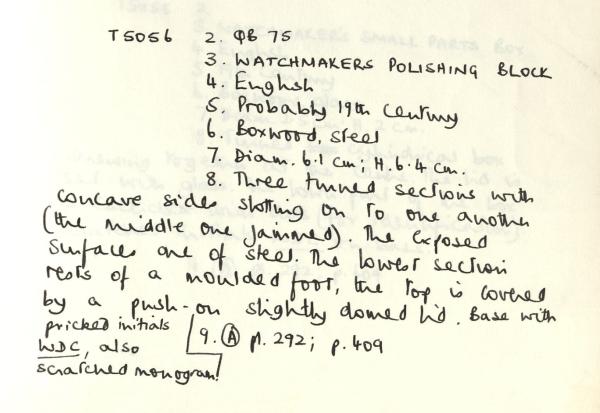 T5056 2. QB 75
3. WATCHMAKERS POLISHING BLOCK
4. English
5. Probably 19th Century
6. Boxwood, steel
7. Diam. 6.1 cm; H. 6.4 cm.
8. Three turned sections with
concave sides slotting on to one another
(the middle one jammed) The exposed
surfaces are of steel. The lowest section
rests of a moulded foot, the top is covered
by a push-on slightly domed lid. Base with
pricked initials
WDC, also
scratched monogram!
9. (A) pl. 292; p. 409